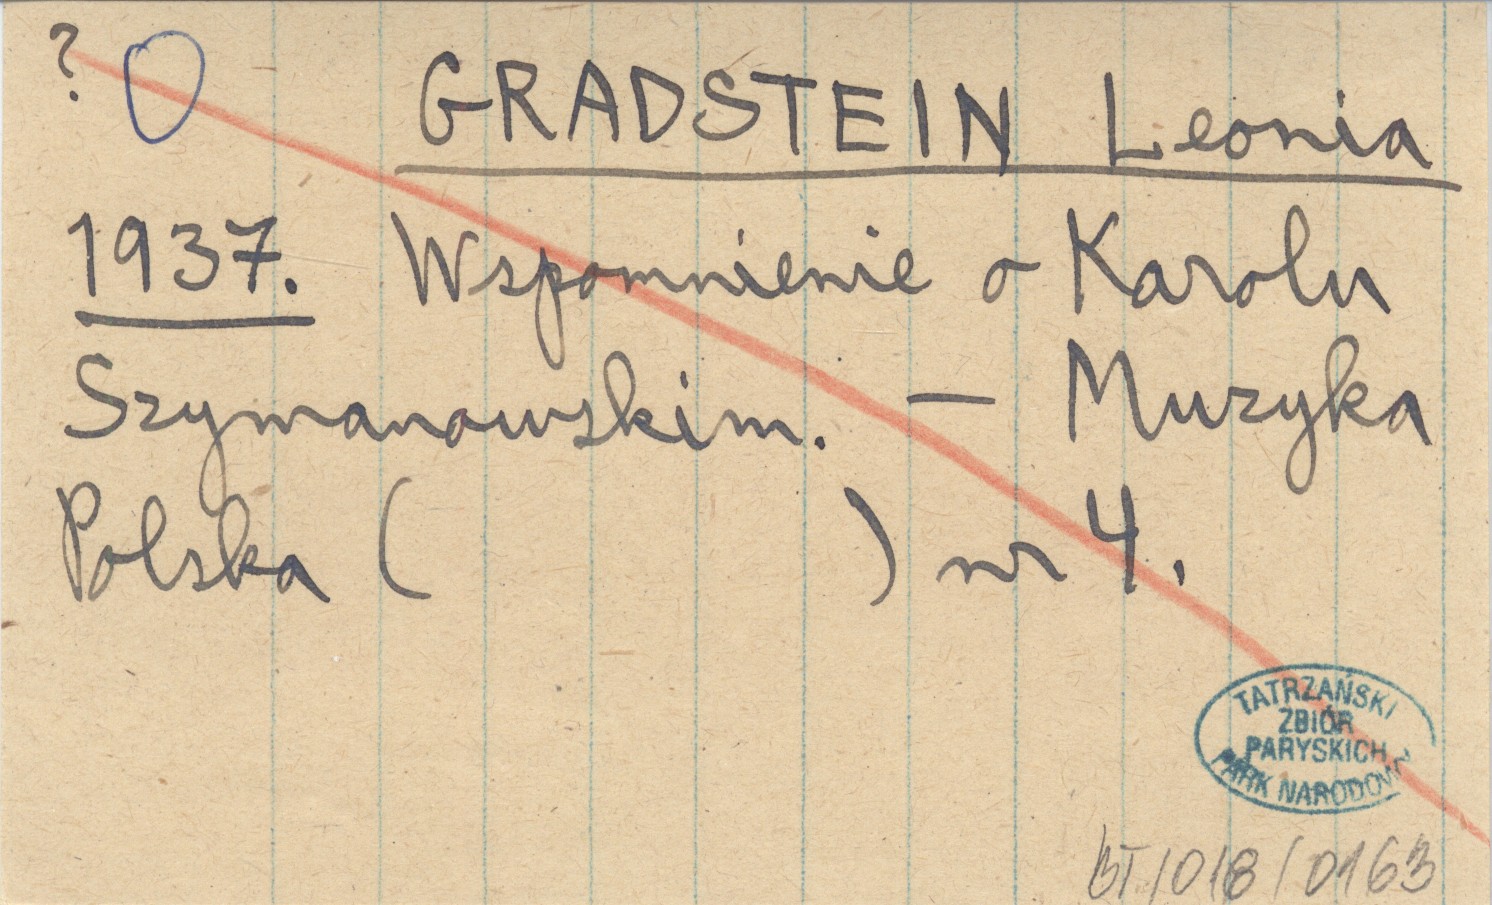 ? O GRADSTEIN Leonia
1937. Wspomnienie o Karolu
Szymanowskim. — Muzyka
Polska ( ) nr 4.
TATRZAŃSKI
ZBIÓR
PARYSKICH
PARK NARODOWY
BT/018/0163